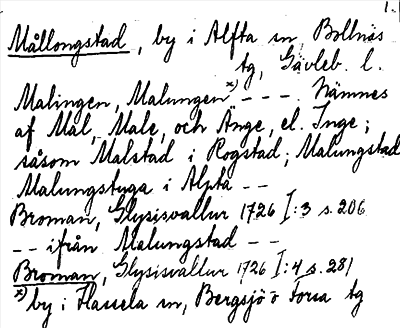 1.
Mållongstad, by i Alfta sn, Bollnäs
tg, Gävleb. l.
Malingen, Malungen x) - - - . Nämnes
af Mal, Male, och Ånge, el. Inge;
såsom Malstad i Rogstad; Malungstad
Malungstuga i Alpta - -
Broman, Glysisvallur 1726 I:3 s. 206
- - ifrån Malungstad - -
Broman, Glysisvallur 1726 I:4 s. 281
x) by i Hassela sn, Bergsjö o Forsa tg